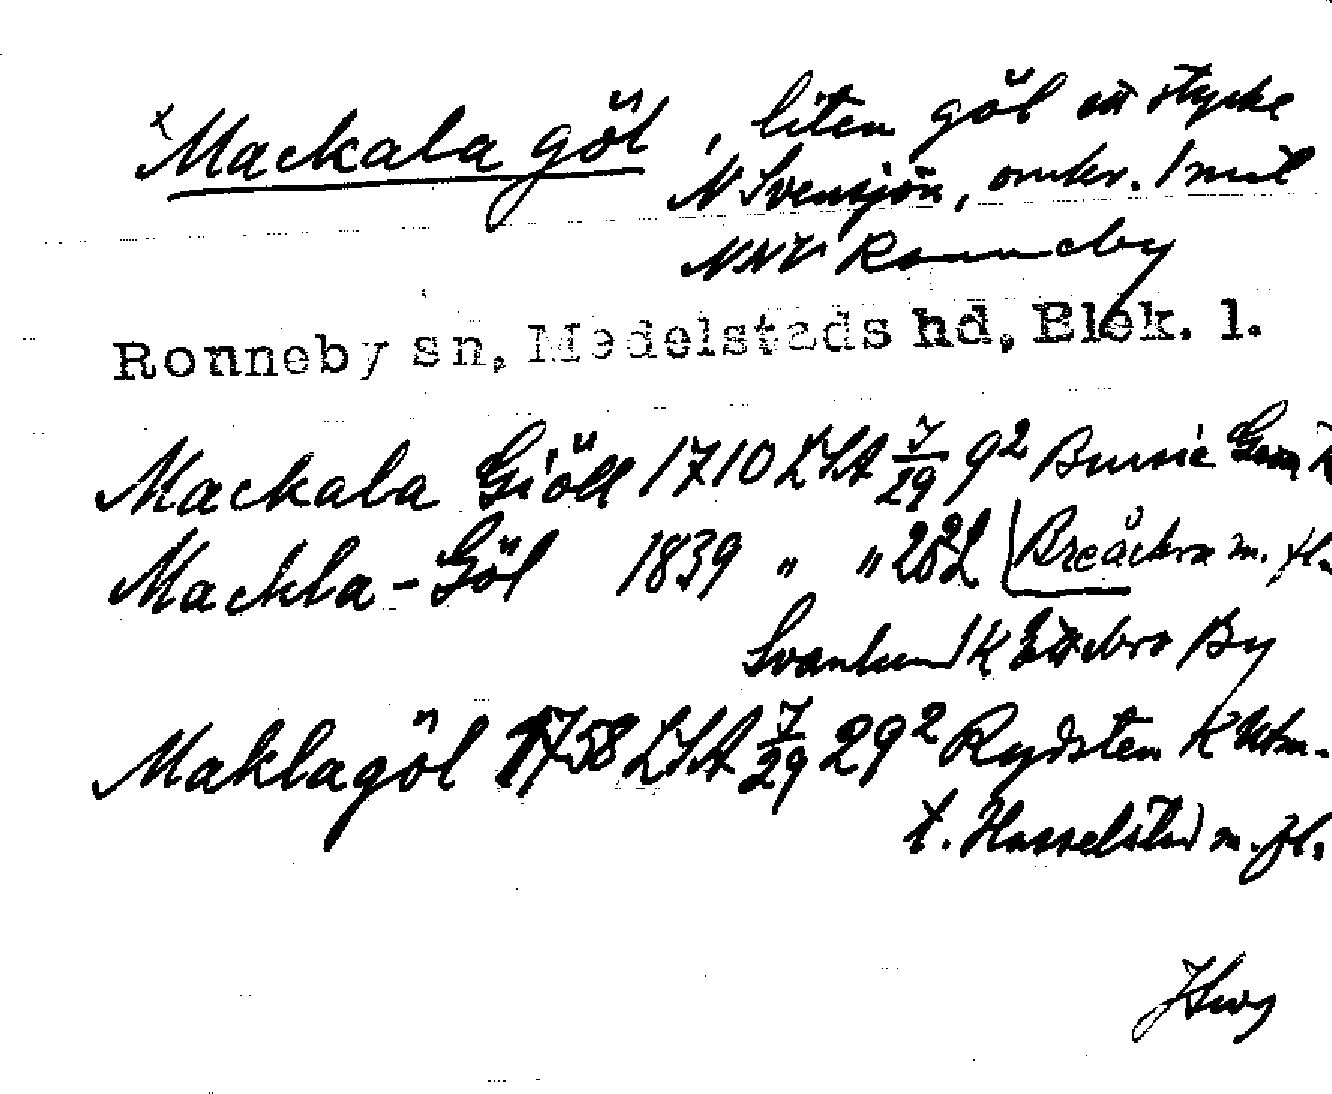 x Mackala göl, liten göl ett stycke
N Svensjön, omkr. 1 mil
NNV Ronneby
Ronneby sn, Medelstads hd, Blek. l.
Mackala Giöll 1710 LSA 7/29 9² Geom K
Mackla-Göl 1839 " " 282 (Breåckra m. fl.
K Ettebro By
Maklagöl 1758 LSA 7/29 29² Rydsten K Utm.
t. Hasselstad m. fl.